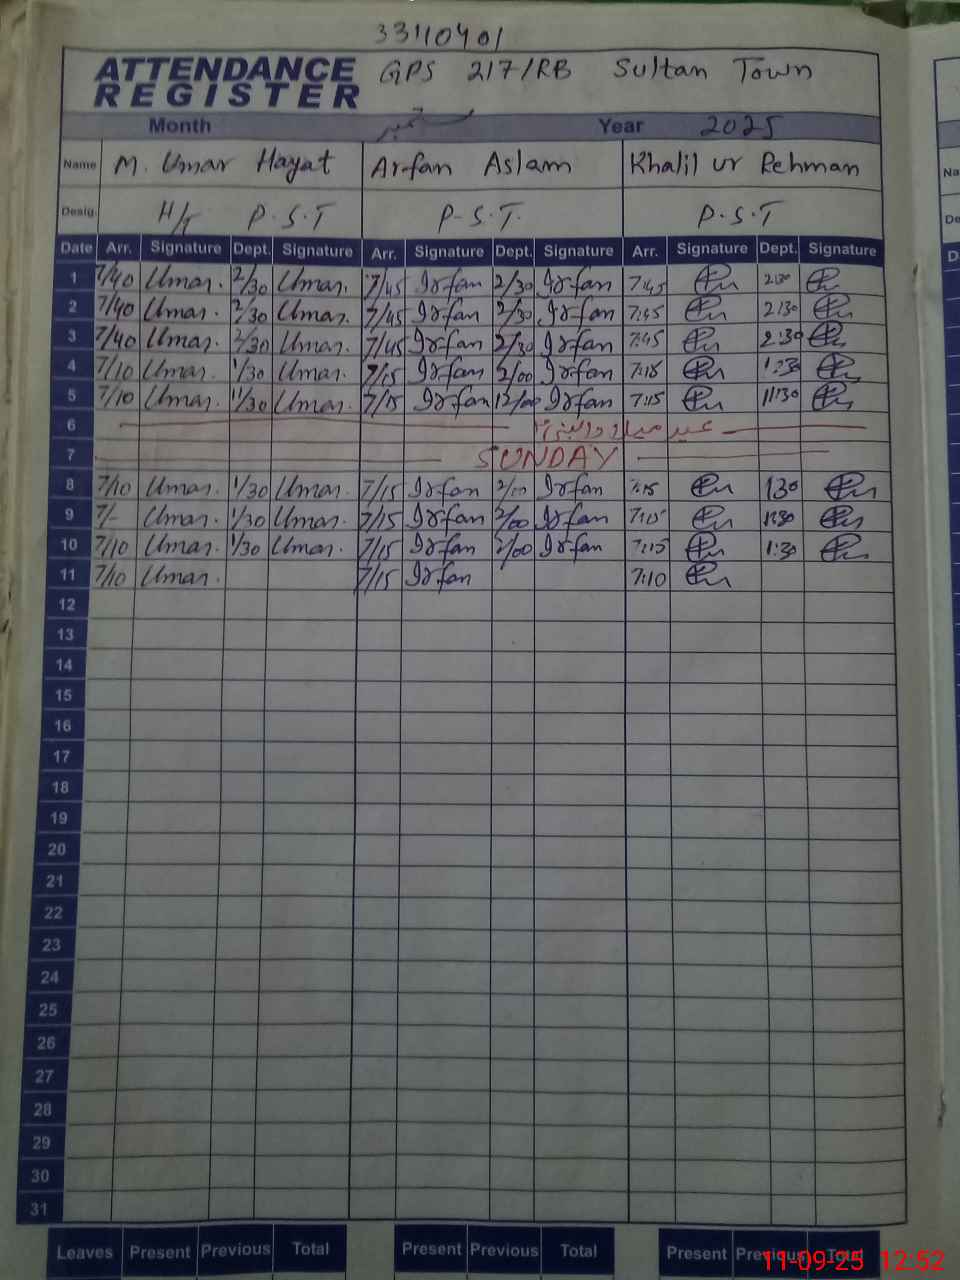 33110401
ATTENDANCE REGISTER GPS 217/RB Sultan Town
Month ستمبر Year 2025
Name M. Umar Hayat Arfan Aslam Khalil ur Rehman
Desig. H/T P.S.T P-S.T. P.S.T
Date Arr. Signature Dept. Signature Arr. Signature Dept. Signature Arr. Signature Dept. Signature
1 7/40 Umar. 2/30 Umar. 7/45 Irfan 2/30 Irfan 7:45 2:30
2 7/40 Umar. 2/30 Umar. 7/45 Irfan 2/30 Irfan 7:45 2:30
3 7/40 Umar. 2/30 Umar. 7/45 Irfan 2/30 Irfan 7:45 2:30
4 7/10 Umar. 1/30 Umar. 7/15 Irfan 2/00 Irfan 7:15 1:30
5 7/10 Umar. 1/30 Umar. 7/15 Irfan 12/00 Irfan 7:15 11:30
6 عید میلاد النبی
7 SUNDAY
8 7/10 Umar. 1/30 Umar. 7/15 Irfan 2/00 Irfan 7:15 1:30
9 7/- Umar. 1/30 Umar. 7/15 Irfan 2/00 Irfan 7:15 1:30
10 7/10 Umar. 1/30 Umar. 7/15 Irfan 2/00 Irfan 7:15 1:30
11 7/10 Umar. 7/15 Irfan 7:10
12
13
14
15
16
17
18
19
20
21
22
23
24
25
26
27
28
29
30
31
Leaves Present Previous Total Present Previous Total Present Previous Total
11-09-25 12:52